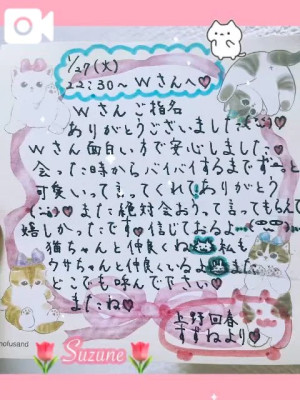 1/27(火)
22:30〜Wさんへ♥
Wさんご指名
ありがとうございました
Wさん面白い方で安心しました
会った時からバイバイするまでずーっと
可愛いって言ってくれ!ありがとう
また絶対会おうって言ってもらえて
嬉しかったです 信じておるよ
猫ちゃんと仲良くね 私も
ウサちゃんと仲良くいるよ また
どこでも呼んで下さい♥
またね♥
上野回春
すずねより♥
mofusand
Suzune